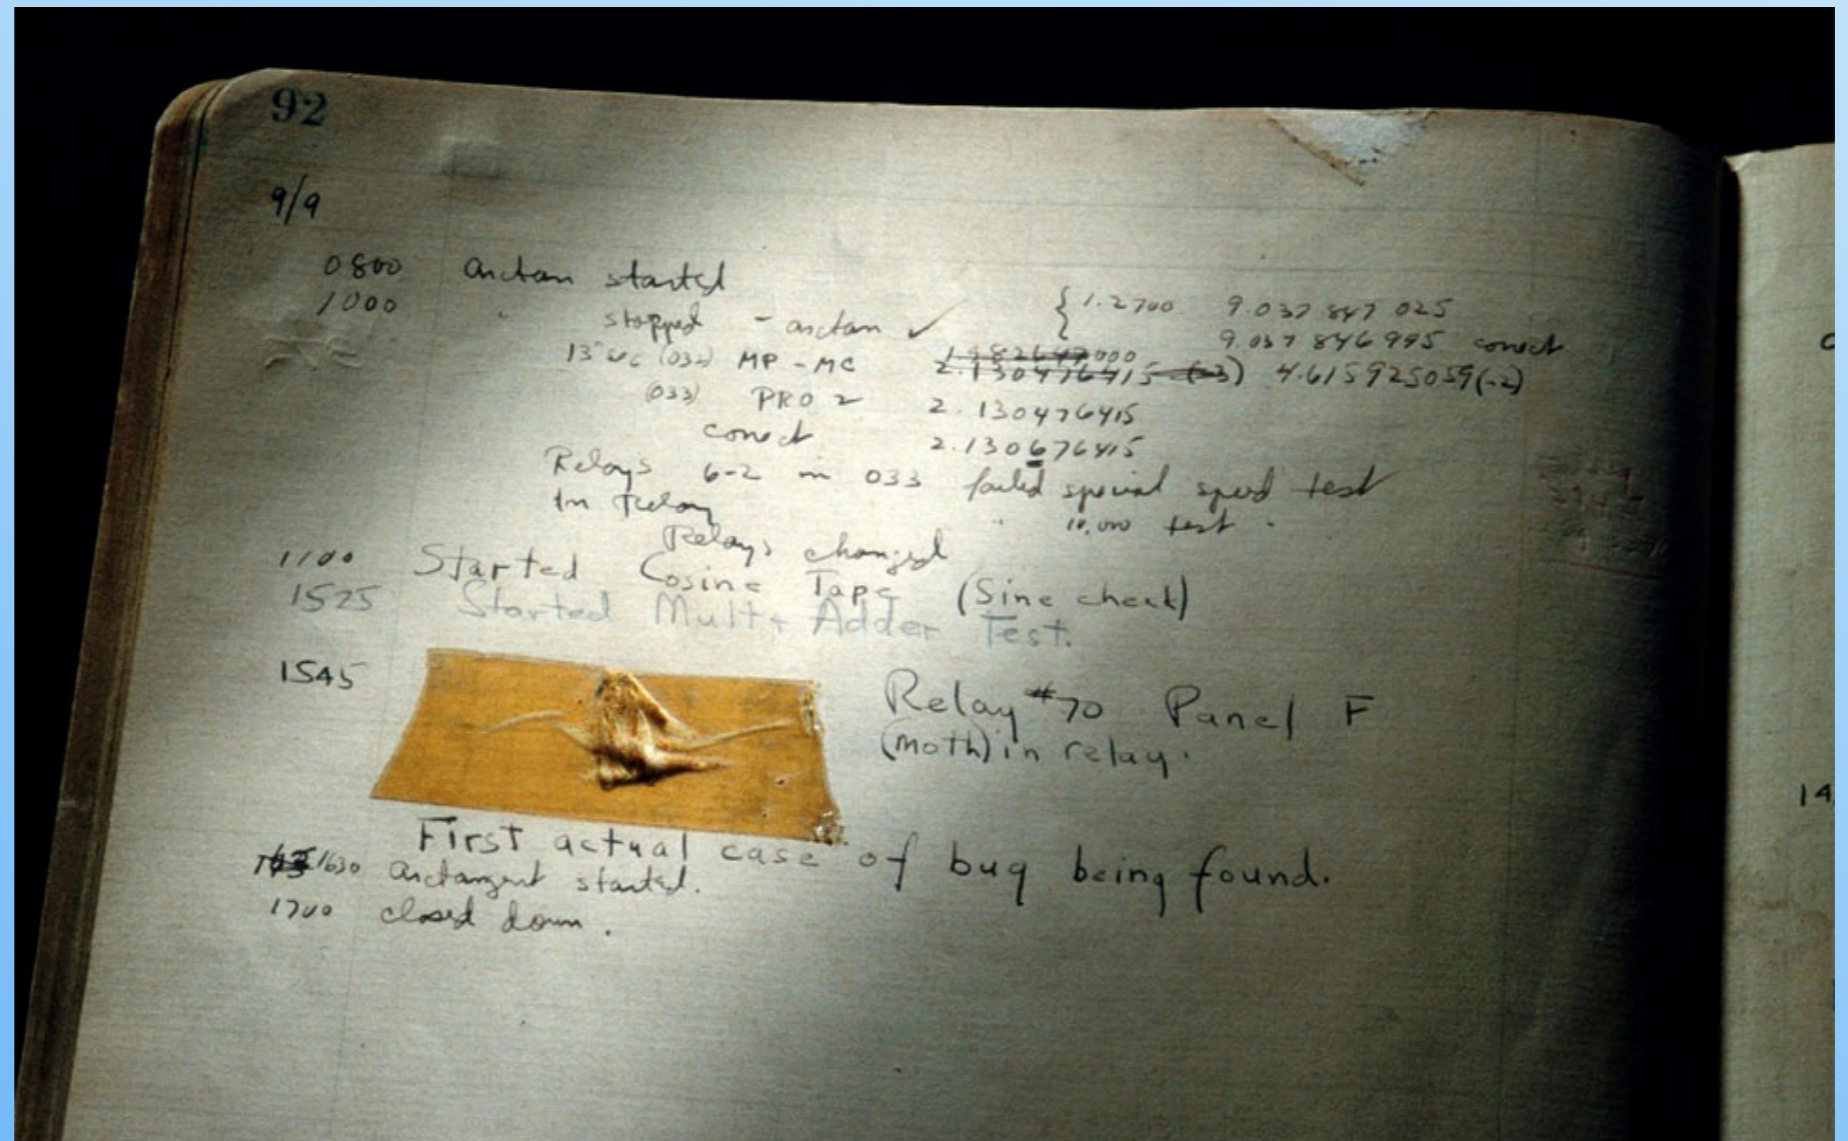 92
9/9
0800 arctan started
1000 " stopped - arctan ✓ { 1.2700 9.037 847 025
9.037 846 995 conect
13" sec (032) MP - MC 2.130476415 (-3) 4.615925059(-2)
(033) PRO 2 2.130476415
conect 2.130676415
Relays 6-2 in 033 failed special speed test
In Relay " 10,000 test .
Relays changed
1100 Started Cosine Tape (Sine check)
1525 Started Mult + Adder Test.
1545 Relay #70 Panel F
(moth) in relay.
First actual case of bug being found.
1630 arctangent started.
1700 closed down.
14